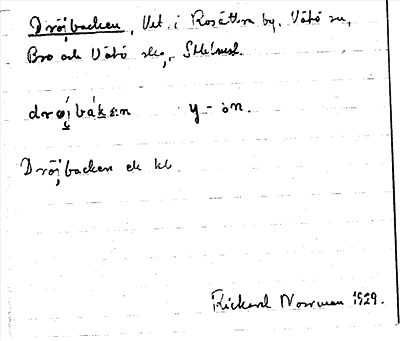 Dröjbacken, Vet. i Rosättra by, Vätö sn,
Bro och Vätö skg, Sthlms l.
drøi̯bák:en y-ɔn.
Dröjbacken ek kb.
Rickard Norrman 1929.